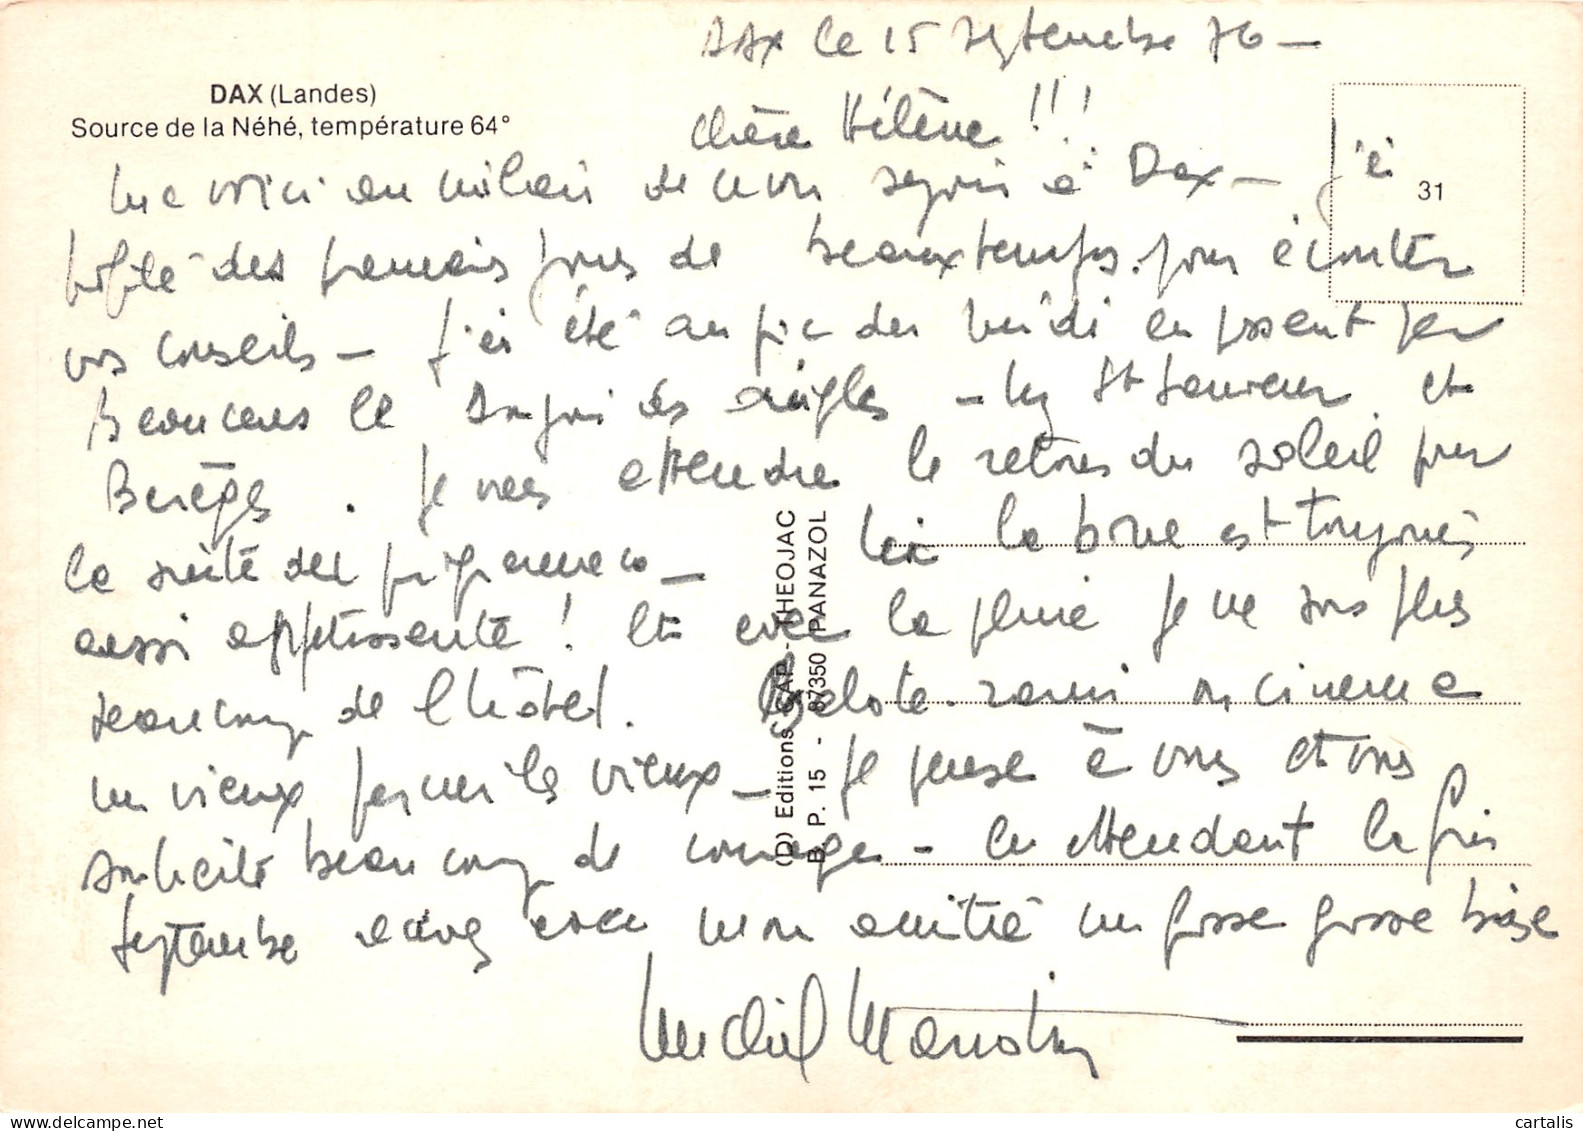 DAX (Landes)
Source de la Néhé, température 64°
DAX le 15 septembre 76 -
Chère Hélène !!!
Me voici au milieu de mon séjour à Dax - j'ai
31
profité des premiers jours de beaux temps pour écouter
vos conseils - j'ai été au pic du midi en passant par
Beaucens le Donjon des aigles - Luz St Sauveur et
Barèges . Je vais attendre le retour du soleil pour
la suite du programme - Ici la boue est toujours
aussi appétissante ! Et avec la pluie je ne sors plus
beaucoup de l'hôtel. Belote - rami ou cinema
un vieux parmi les vieux - Je pense à vous et vous
souhaite beaucoup de courage - En attendant la fin
septembre avec mon amitié un grosse grosse bise
Michel
(D) Editions CAP - THEOJAC
B. P. 15 - 87350 PANAZOL
cartalis